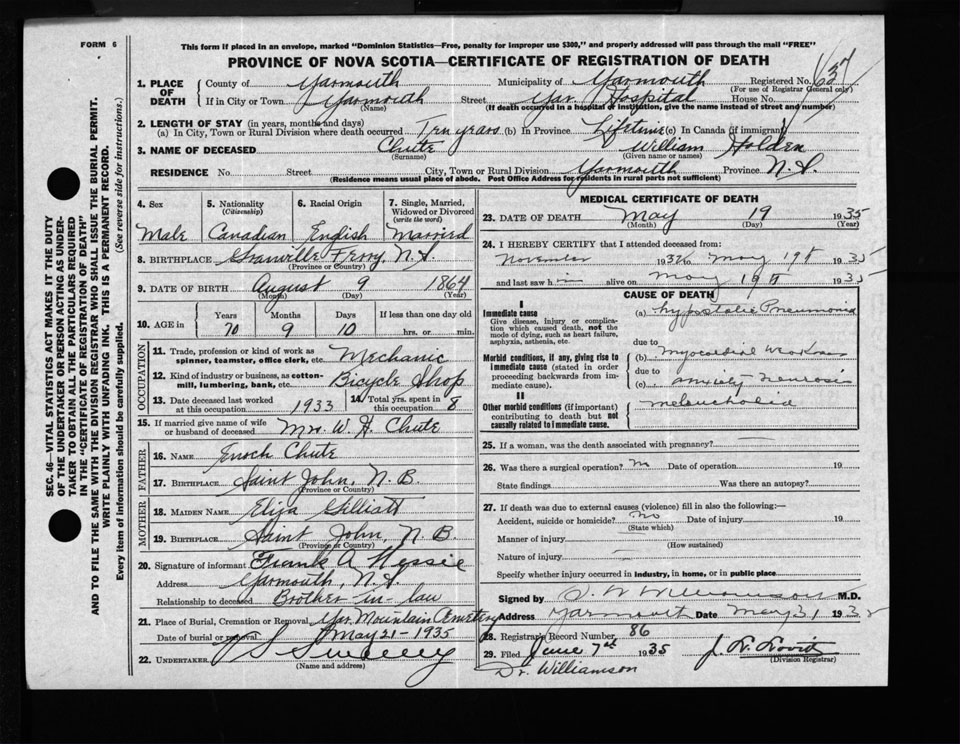 FORM 6
This form if placed in an envelope, marked "Dominion Statistics—Free, penalty for improper use $300," and properly addressed will pass through the mail "FREE"
PROVINCE OF NOVA SCOTIA—CERTIFICATE OF REGISTRATION OF DEATH
1. PLACE OF DEATH County of Yarmouth Municipality of Yarmouth Registered No.
(For use of Registrar General only)
If in City or Town Yarmouth Street Yar Hospital House No.
(Name) (If death occurred in a hospital or institution, give the name instead of street and number)
2. LENGTH OF STAY (in years, months and days)
(a) In City, Town or Rural Division where death occurred Ten years (b) In Province Lifetime (c) In Canada (if immigrant)
3. NAME OF DECEASED Chute William Holden
(Surname) (Given name or names)
RESIDENCE No. Street City, Town or Rural Division Yarmouth Province N.S.
(Residence means usual place of abode. Post Office Address for residents in rural parts not sufficient)
SEC. 46—VITAL STATISTICS ACT MAKES IT THE DUTY
OF THE UNDERTAKER OR PERSON ACTING AS UNDER-
TAKER TO OBTAIN ALL THE PARTICULARS REQUIRED
IN THE "CERTIFICATE OF REGISTRATION OF DEATH"
AND TO FILE THE SAME WITH THE DIVISION REGISTRAR WHO SHALL ISSUE THE BURIAL PERMIT.
WRITE PLAINLY WITH UNFADING INK. THIS IS A PERMANENT RECORD.
Every item of information should be carefully supplied. (See reverse side for instructions.)
4. Sex 5. Nationality (Citizenship) 6. Racial Origin 7. Single, Married, Widowed or Divorced (write the word)
Male Canadian English Married
8. BIRTHPLACE Granville Ferry, N.S.
(Province or Country)
9. DATE OF BIRTH August 9 1864
(Month) (Day) (Year)
10. AGE in Years Months Days If less than one day old
70 9 10 hrs. or min.
OCCUPATION
11. Trade, profession or kind of work as spinner, teamster, office clerk, etc. Mechanic
12. Kind of industry or business, as cotton-mill, lumbering, bank, etc. Bicycle Shop
13. Date deceased last worked at this occupation 1933 14. Total yrs. spent in this occupation 8
15. If married give name of wife or husband of deceased Mrs. W. H. Chute
FATHER
16. NAME Enoch Chute
17. BIRTHPLACE Saint John, N.B.
(Province or Country)
MOTHER
18. MAIDEN NAME Eliza Gilliatt
19. BIRTHPLACE Saint John, N.B.
(Province or Country)
20. Signature of informant Frank A
Address Yarmouth, N.S.
Relationship to deceased Brother-in-law
21. Place of Burial, Cremation or Removal Yar. Mountain Cemetery
Date of burial or removal May 21-1935
22. UNDERTAKER Sweeney
(Name and address)
MEDICAL CERTIFICATE OF DEATH
23. DATE OF DEATH May 19 1935
(Month) (Day) (Year)
24. I HEREBY CERTIFY that I attended deceased from:
November 1932 to May 19th 1935
and last saw him alive on May 19th 1935
CAUSE OF DEATH
I
Immediate cause (a) hypostatic Pneumonia
Give disease, injury or complication which caused death, not the mode of dying, such as heart failure, asphyxia, asthenia, etc.
due to
Morbid conditions, if any, giving rise to immediate cause (stated in order proceeding backwards from immediate cause). (b) Myocardial weakness
due to
(c) anxiety neurosis
II
Other morbid conditions (if important) contributing to death but not causally related to immediate cause. melancholia
25. If a woman, was the death associated with pregnancy?
26. Was there a surgical operation? no Date of operation 19
State findings Was there an autopsy?
27. If death was due to external causes (violence) fill in also the following:—
Accident, suicide or homicide? no Date of injury 19
(State which)
Manner of injury
(How sustained)
Nature of injury
Specify whether injury occurred in industry, in home, or in public place
Signed by Williamson M.D.
Address Yarmouth Date May 31 1935
28. Registrar's Record Number 86
29. Filed June 7th 1935
(Division Registrar)
Dr. Williamson